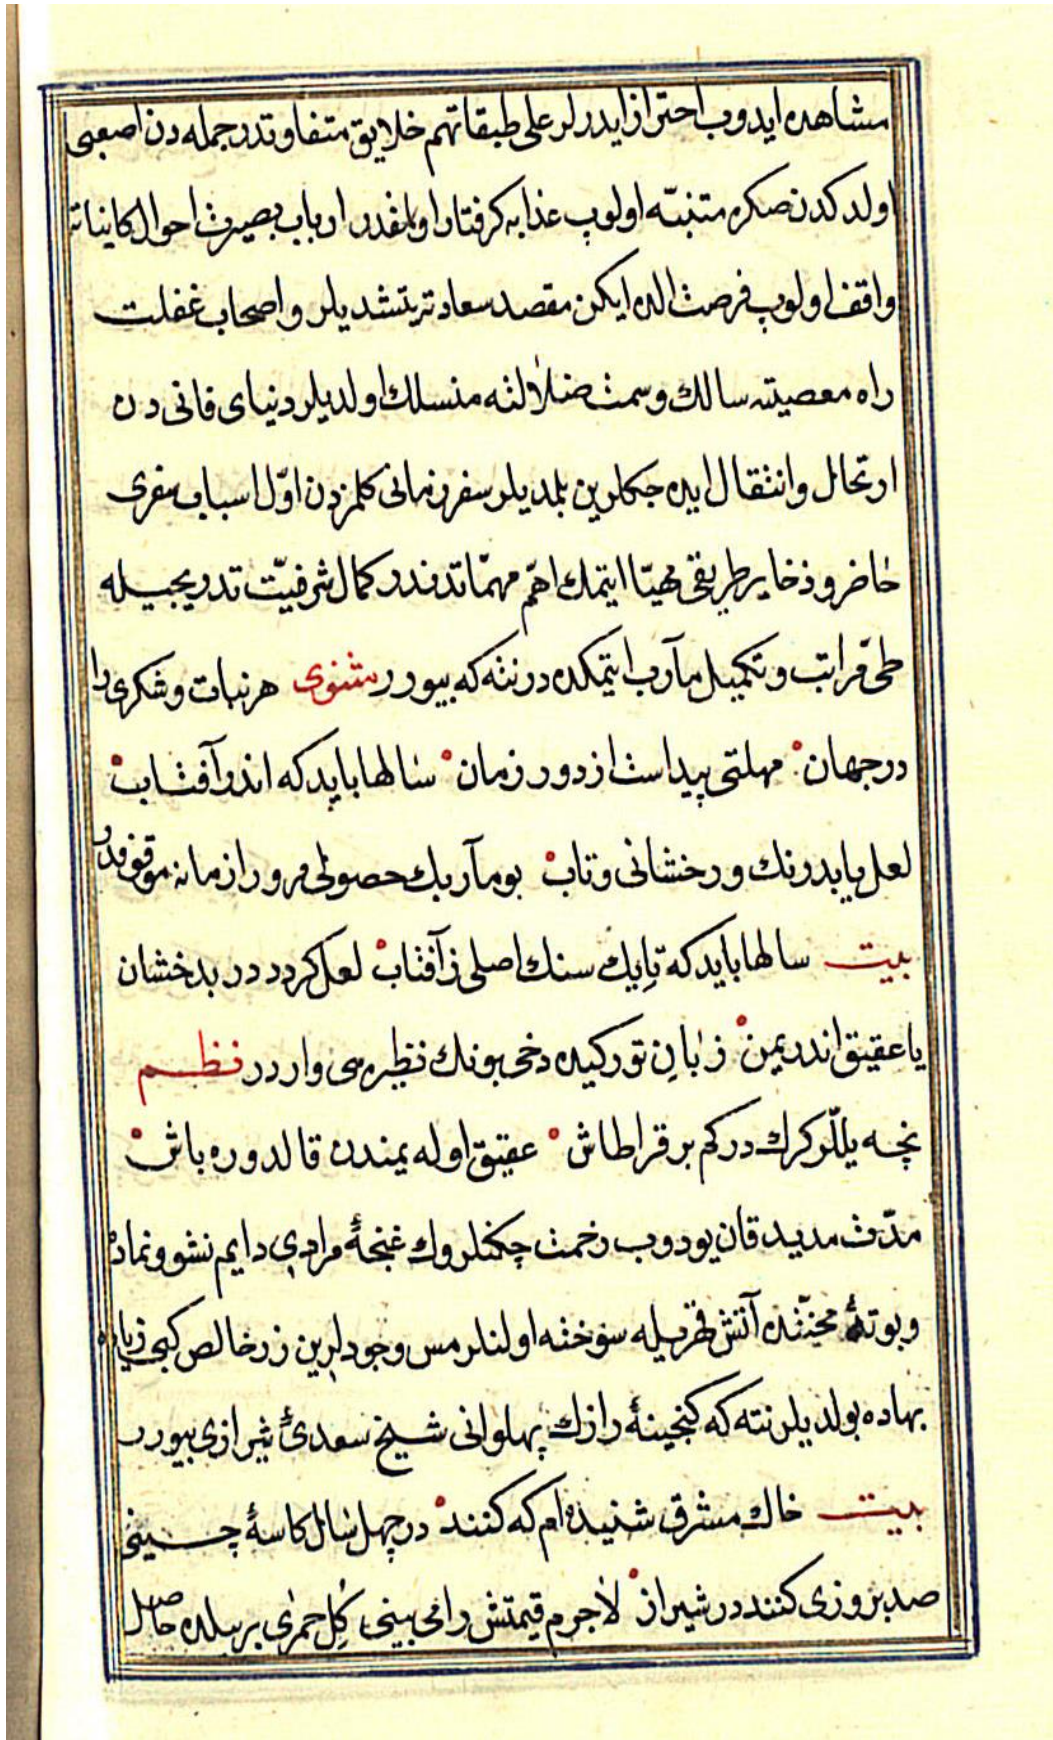 مشاهده ایدوب احتراز ایدرلر علی طبقاتهم خلایق متفاوتدر جمله دن اصعبی
اولدکدن صکره متنبّه اولوب عذابه کرفتار اولمقدر ارباب بصیرت احوال کایناته
واقف اولوب فرصت الده ایکن مقصد سعادته یتشدیلر و اصحاب غفلت
راه معصیته سالك و سمت ضلالته منسلك اولدیلر دنیای فانی دن
ارتحال و انتقال ایده جکلرین بلمدیلر سفر زمانی کلمزدن اوّل اسباب سفری
حاضر و ذخایر طریقی مهیّا ایتمك اهّم مهمّاتدندر کمال شرفیّت تدریجیله
طیّ مراتب و تکمیل مآرب ایتمکده در نته که بیورر مثنوی هر نبات و شکری را
در جهان مهلتی پیداست از دور زمان سالها باید که اندر آفتاب
لعل یابد رنك و رخشانی و تاب بو مآربك حصولی مرور ازمانه موقوفدر
بیت سالها باید که تا یك سنك اصلی ز آفتاب لعل کردد در بدخشان
یا عقیق اندر یمن زبان تورکیده دخی بونك نظیره سی واردر نظم
نچه ییللر کرك در کم بر قرا طاش عقیق اوله یمندن قالدوره باش
مدّت مدید قان یودوب زحمت چکنلروك غنچۀ مرادی دایم نشو و نماده
و بوتۀ محنتده آتش قهریله سوخته اولنلر مس وجودلرین زر خالص کبی زیاده
بهاده بولدیلر نته که کنجینۀ رازك پهلوانی شیخ سعدیٔ شیرازی بیورر
بیت خاك مشرق شنیده ام که کنند در چهل سال کاسۀ چینی
صد بروزی کنند در شیراز لاجرم قیمتش را می بینی کل حمری بر ییلده حاصل